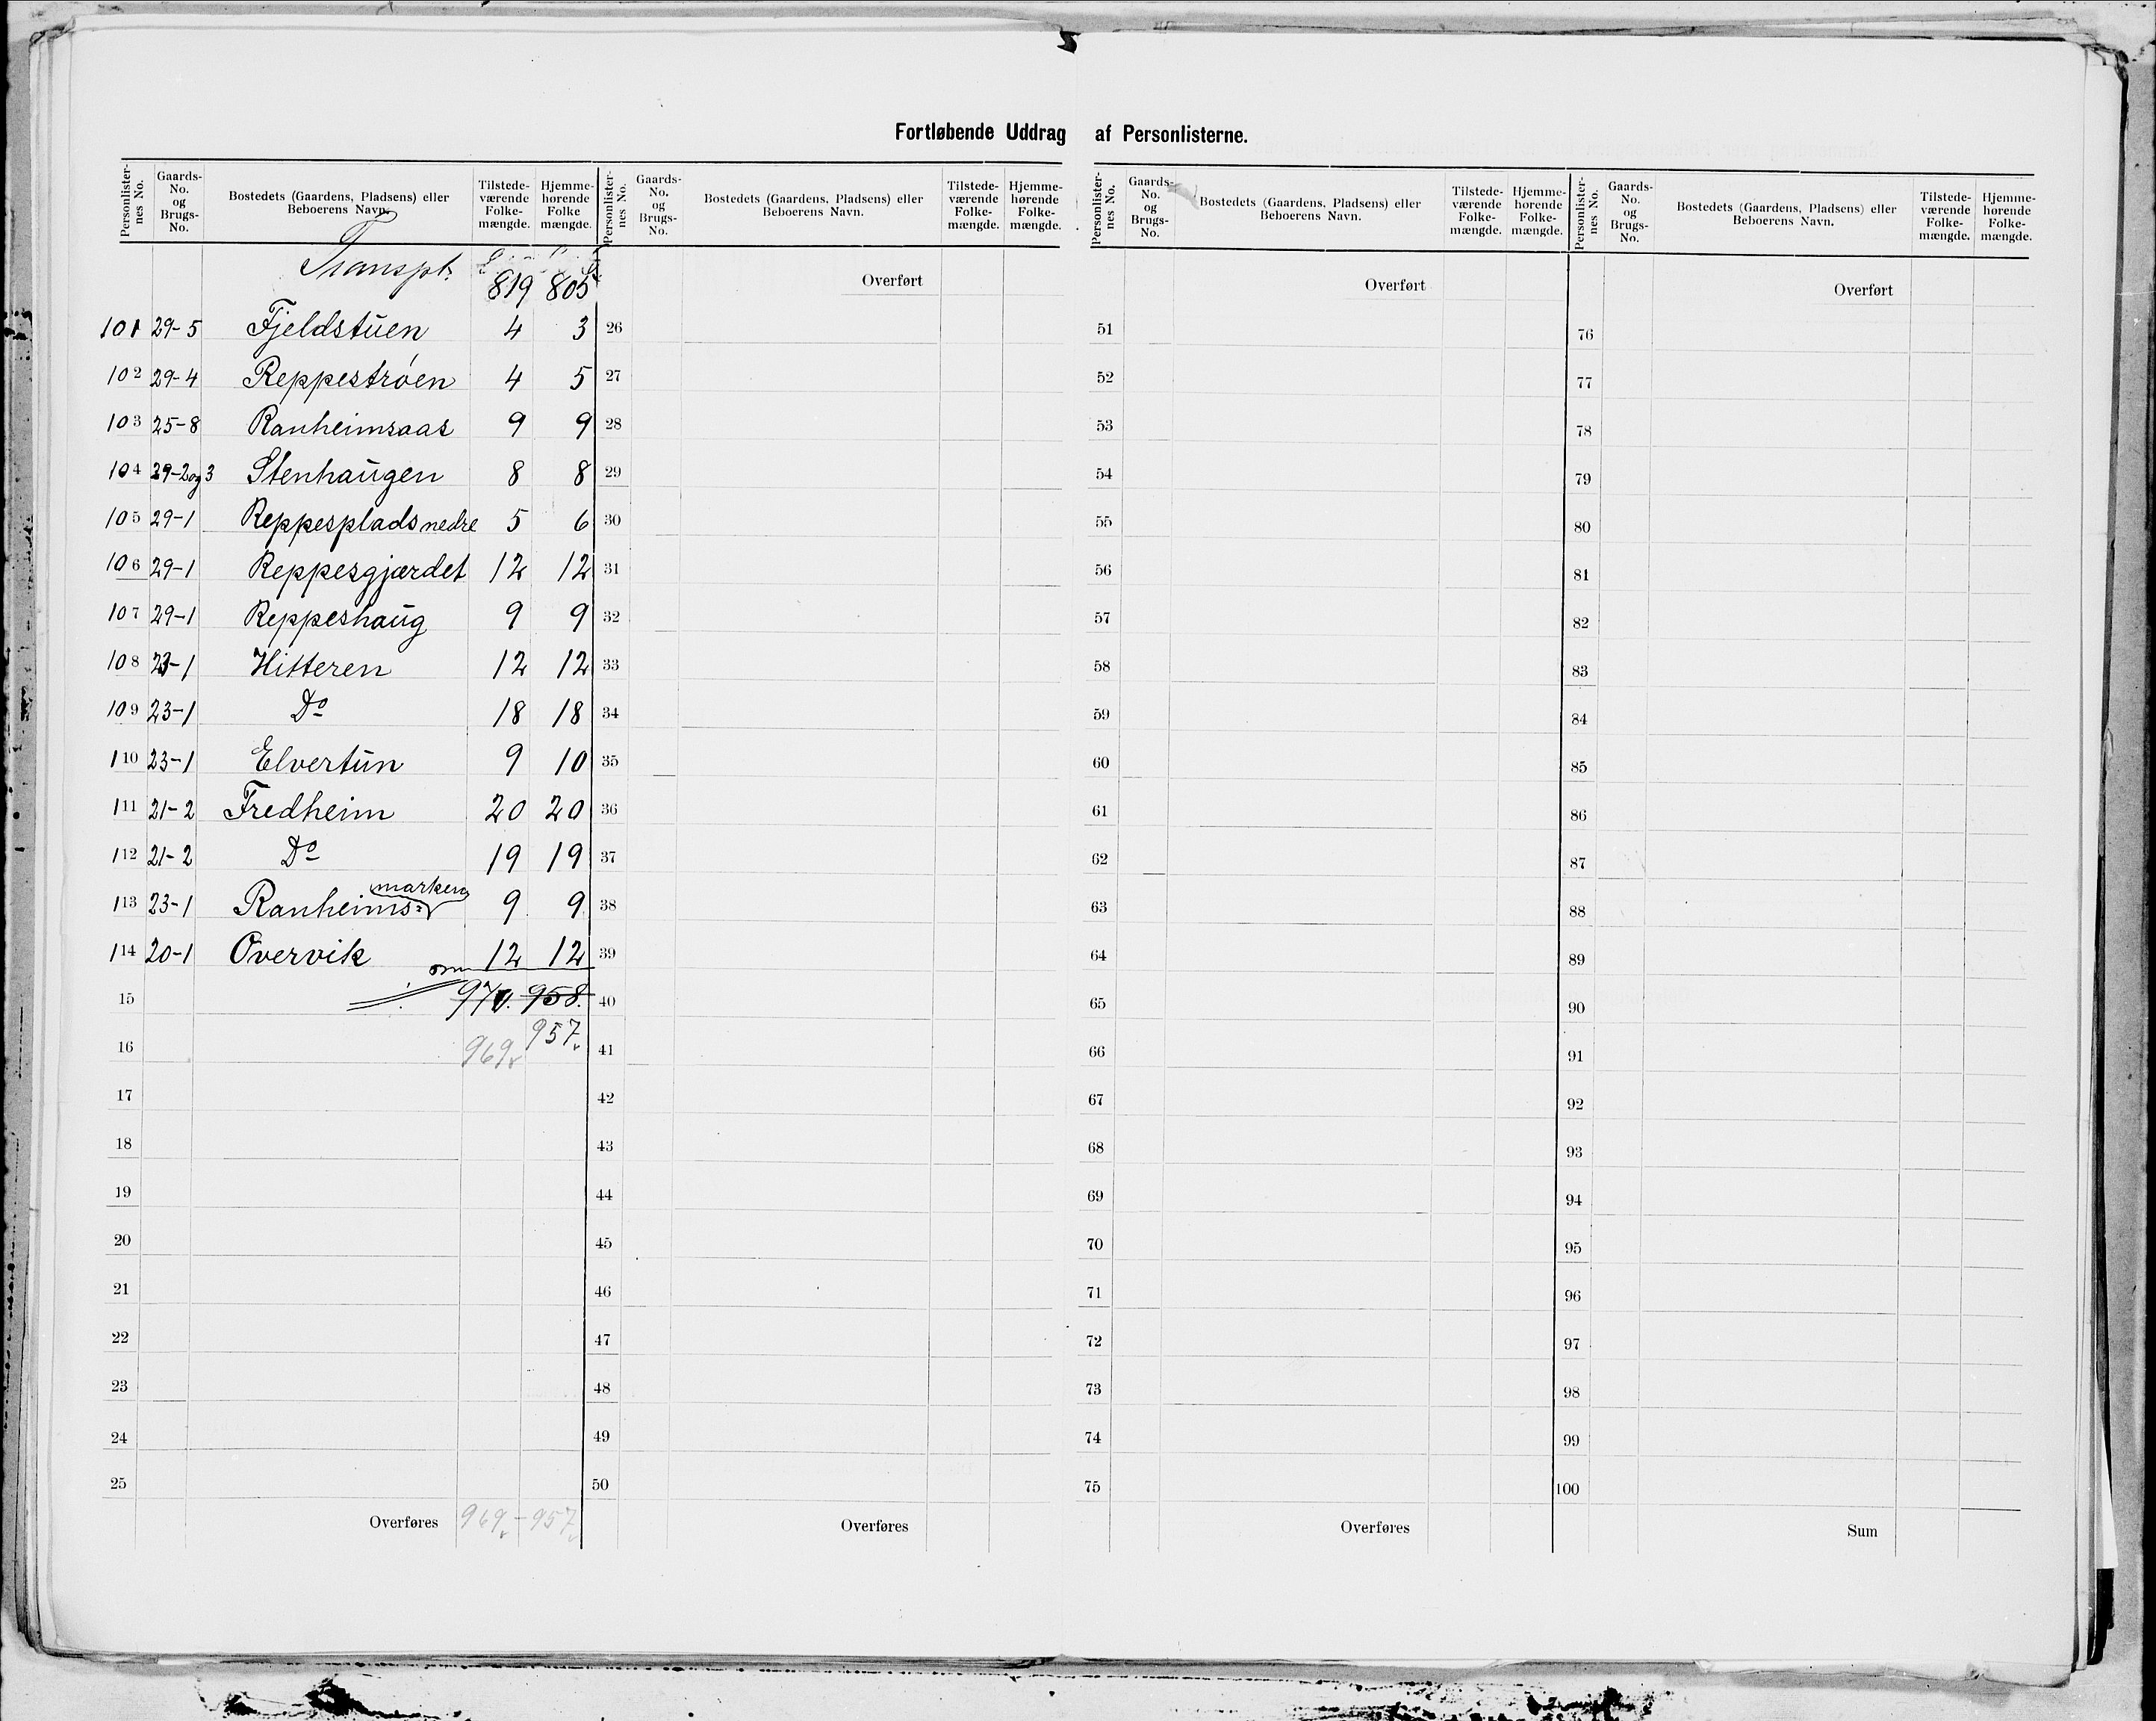 Fortløbende Uddrag af Personlisterne.
Personlister-nes No. Gaards-No. og Brugs-No. Bostedets (Gaardens, Pladsens) eller Beboerens Navn. Tilstede-værende Folke-mængde. Hjemme-hørende Folke mængde.
Transpt. 819 805
101 29-5 Fjeldstuen 4 3
102 29-4 Reppestrøen 4 5
103 25-8 Ranheimsaas 9 9
104 29-2og3 Stenhaugen 8 8
105 29-1 Reppesplads nedre 5 6
106 29-1 Reppesgjærdet 12 12
107 29-1 Reppeshaug 9 9
108 23-1 Hitteren 12 12
109 23-1 Do 18 18
110 23-1 Elvertun 9 10
111 21-2 Fredheim 20 20
112 21-2 Do 19 19
113 23-1 Ranheims= marken 9 9
114 20-1 Overvik 12 12
15 970. 958.
16 969 957.
17
18
19
20
21
22
23
24
25
Overføres 969 - 957
Personlister-nes No. Gaards-No. og Brugs-No. Bostedets (Gaardens, Pladsens) eller Beboerens Navn. Tilstede-værende Folke-mængde. Hjemme-hørende Folke-mængde.
Overført
26
27
28
29
30
31
32
33
34
35
36
37
38
39
40
41
42
43
44
45
46
47
48
49
50
Overføres
Personlister-nes No. Gaards-No. og Brugs-No. Bostedets (Gaardens, Pladsens) eller Beboerens Navn. Tilstede-værende Folke-mængde. Hjemme-hørende Folke-mængde.
Overført
51
52
53
54
55
56
57
58
59
60
61
62
63
64
65
66
67
68
69
70
71
72
73
74
75
Overføres
Personlister-nes No. Gaards-No. og Brugs-No. Bostedets (Gaardens, Pladsens) eller Beboerens Navn. Tilstede-værende Folke-mængde. Hjemme-hørende Folke-mængde.
Overført
76
77
78
79
80
81
82
83
84
85
86
87
88
89
90
91
92
93
94
95
96
97
98
99
100
Sum